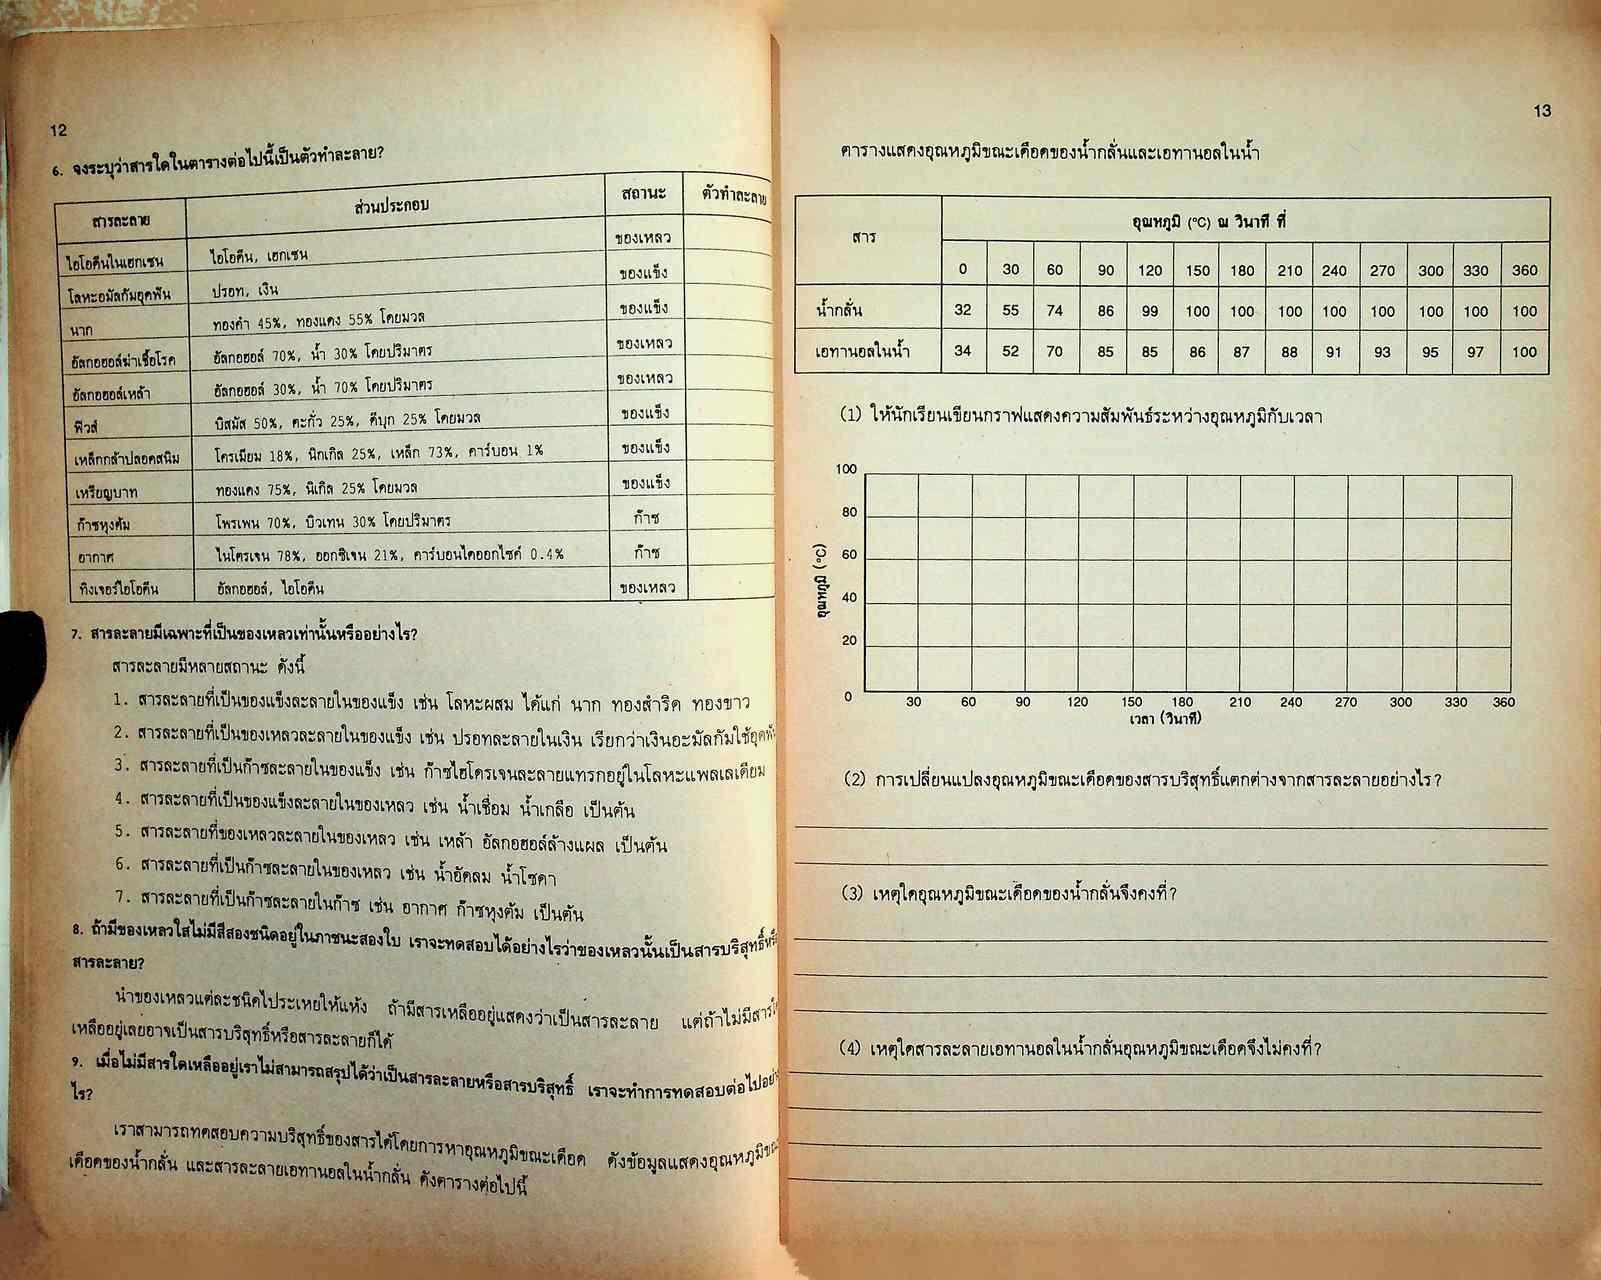 12
6. จงระบุว่าสารใดในตารางต่อไปนี้เป็นตัวทำละลาย?
สารละลาย ส่วนประกอบ สถานะ ตัวทำละลาย
ไอโอดีนในเฮกเซน ไอโอดีน, เฮกเซน ของเหลว
โลหะอมัลกัมอุดฟัน ปรอท, เงิน ของแข็ง
นาก ทองคำ 45%, ทองแดง 55% โดยมวล ของแข็ง
อัลกอฮอล์ฆ่าเชื้อโรค อัลกอฮอล์ 70%, น้ำ 30% โดยปริมาตร ของเหลว
อัลกอฮอล์เหล้า อัลกอฮอล์ 30%, น้ำ 70% โดยปริมาตร ของเหลว
ฟิวส์ บิสมัส 50%, ตะกั่ว 25%, ดีบุก 25% โดยมวล ของแข็ง
เหล็กกล้าปลอดสนิม โครเมียม 18%, นิกเกิล 25%, เหล็ก 73%, คาร์บอน 1% ของแข็ง
เหรียญบาท ทองแดง 75%, นิเกิล 25% โดยมวล ของแข็ง
ก๊าซหุงต้ม โพรเพน 70%, บิวเทน 30% โดยปริมาตร ก๊าซ
อากาศ ไนโตรเจน 78%, ออกซิเจน 21%, คาร์บอนไดออกไซด์ 0.4% ก๊าซ
ทิงเจอร์ไอโอดีน อัลกอฮอล์, ไอโอดีน ของเหลว
7. สารละลายมีเฉพาะที่เป็นของเหลวเท่านั้นหรืออย่างไร?
สารละลายมีหลายสถานะ ดังนี้
1. สารละลายที่เป็นของแข็งละลายในของแข็ง เช่น โลหะผสม ได้แก่ นาก ทองสำริด ทองขาว
2. สารละลายที่เป็นของเหลวละลายในของแข็ง เช่น ปรอทละลายในเงิน เรียกว่าเงินอะมัลกัมใช้อุดฟัน
3. สารละลายที่เป็นก๊าซละลายในของแข็ง เช่น ก๊าซไฮโดรเจนละลายแทรกอยู่ในโลหะแพลเลเดียม
4. สารละลายที่เป็นของแข็งละลายในของเหลว เช่น น้ำเชื่อม น้ำเกลือ เป็นต้น
5. สารละลายที่ของเหลวละลายในของเหลว เช่น เหล้า อัลกอฮอล์ล้างแผล เป็นต้น
6. สารละลายที่เป็นก๊าซละลายในของเหลว เช่น น้ำอัดลม น้ำโซดา
7. สารละลายที่เป็นก๊าซละลายในก๊าซ เช่น อากาศ ก๊าซหุงต้ม เป็นต้น
8. ถ้ามีของเหลวใสไม่มีสีสองชนิดอยู่ในภาชนะสองใบ เราจะทดสอบได้อย่างไรว่าของเหลวนั้นเป็นสารบริสุทธิ์หรือ
สารละลาย?
นำของเหลวแต่ละชนิดไประเหยให้แห้ง ถ้ามีสารเหลืออยู่แสดงว่าเป็นสารละลาย แต่ถ้าไม่มีสารใด
เหลืออยู่เลยอาจเป็นสารบริสุทธิ์หรือสารละลายก็ได้
9. เมื่อไม่มีสารใดเหลืออยู่เราไม่สามารถสรุปได้ว่าเป็นสารละลายหรือสารบริสุทธิ์ เราจะทำการทดสอบต่อไปอย่าง
ไร?
เราสามารถทดสอบความบริสุทธิ์ของสารได้โดยการหาอุณหภูมิขณะเดือด ดังข้อมูลแสดงอุณหภูมิขณะ
เดือดของน้ำกลั่น และสารละลายเอทานอลในน้ำกลั่น ดังตารางต่อไปนี้
13
ตารางแสดงอุณหภูมิขณะเดือดของน้ำกลั่นและเอทานอลในน้ำ
สาร อุณหภูมิ (°C) ณ วินาที ที่
0 30 60 90 120 150 180 210 240 270 300 330 360
น้ำกลั่น 32 55 74 86 99 100 100 100 100 100 100 100 100
เอทานอลในน้ำ 34 52 70 85 85 86 87 88 91 93 95 97 100
(1) ให้นักเรียนเขียนกราฟแสดงความสัมพันธ์ระหว่างอุณหภูมิกับเวลา
100
80
60
40
20
0
อุณหภูมิ (°C)
30 60 90 120 150 180 210 240 270 300 330 360
เวลา (วินาที)
(2) การเปลี่ยนแปลงอุณหภูมิขณะเดือดของสารบริสุทธิ์แตกต่างจากสารละลายอย่างไร?
(3) เหตุใดอุณหภูมิขณะเดือดของน้ำกลั่นจึงคงที่?
(4) เหตุใดสารละลายเอทานอลในน้ำกลั่นอุณหภูมิขณะเดือดจึงไม่คงที่?